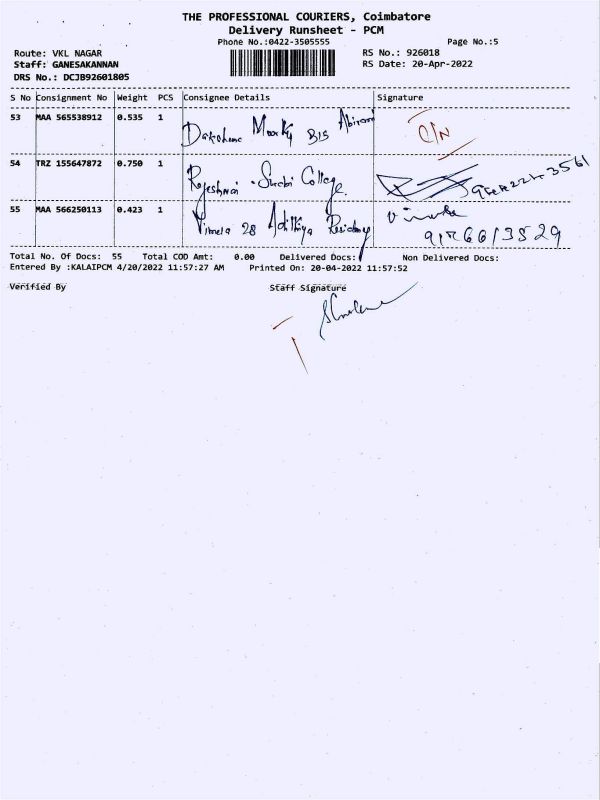 THE PROFESSIONAL COURIERS, Coimbatore
Delivery Runsheet - PCM
Phone No.:0422-3505555 Page No.:5
Route: VKL NAGAR RS No.: 926018
Staff: GANESAKANNAN RS Date: 20-Apr-2022
DRS No.: DCJB92601805
S No Consignment No Weight PCS Consignee Details Signature
53 MAA 565538912 0.535 1
B15 Abirami C/N
54 TRZ 155647872 0.750 1
Rajeshwari College
55 MAA 566250113 0.423 1
Vimala 28 Adithya Residency
Total No. Of Docs: 55 Total COD Amt: 0.00 Delivered Docs: Non Delivered Docs:
Entered By :KALAIPCM 4/20/2022 11:57:27 AM Printed On: 20-04-2022 11:57:52
Verified By Staff Signature